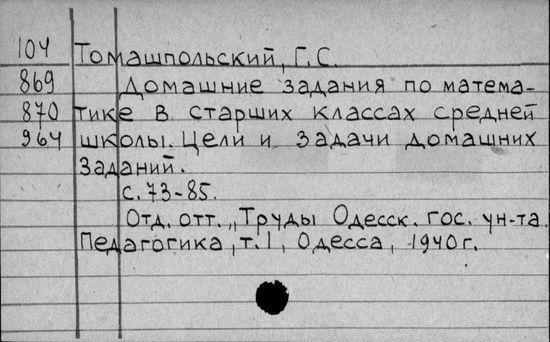 104 Томашпольский, Г. С.
869 Домашние задания по матема-
870 тике в старших классах средней
964 школы. Цели и задачи домашних
заданий.
с. 73-85.
Отд. отт. „Труды Одесск. гос. ун-та.
Педагогика, т. 1, Одесса, 1940 г.